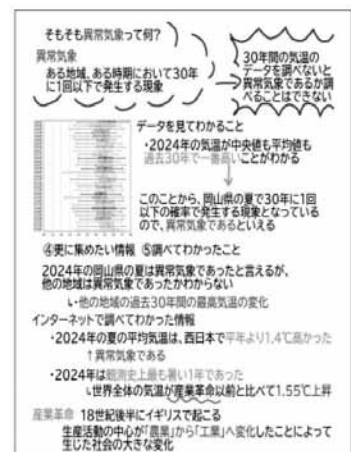 そもそも異常気象って何?
異常気象
ある地域、ある時期において30年
に1回以下で発生する現象
30年間の気温の
データを調べないと
異常気象であるか調
べることはできない
データを見てわかること
・2024年の気温が中央値も平均値も
過去30年で一番高いことがわかる
このことから、岡山県の夏で30年に1回
以下の確率で発生する現象となっている
ので、異常気象であるといえる
④更に集めたい情報 ⑤調べてわかったこと
2024年の岡山県の夏は異常気象であったと言えるが、
他の地域は異常気象であったかわからない
↳・他の地域の過去30年間の最高気温の変化
インターネットで調べてわかった情報
・2024年の夏の平均気温は、西日本で平年より1.4℃高かった
↑異常気象である
・2024年は観測史上最も暑い1年であった
↳世界全体の気温が産業革命以前と比べて1.55℃上昇
産業革命 18世紀後半にイギリスで起こる
生産活動の中心が「農業」から「工業」へ変化したことによって
生じた社会の大きな変化